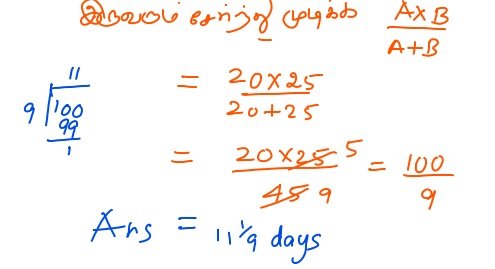 இருவரும் சேர்ந்து முடிக்க A×B / A+B
= 20×25 / 20+25
= 20×25 5 / 45 9 = 100 / 9
11
9 100
99
1
Ans = 11 1/9 days